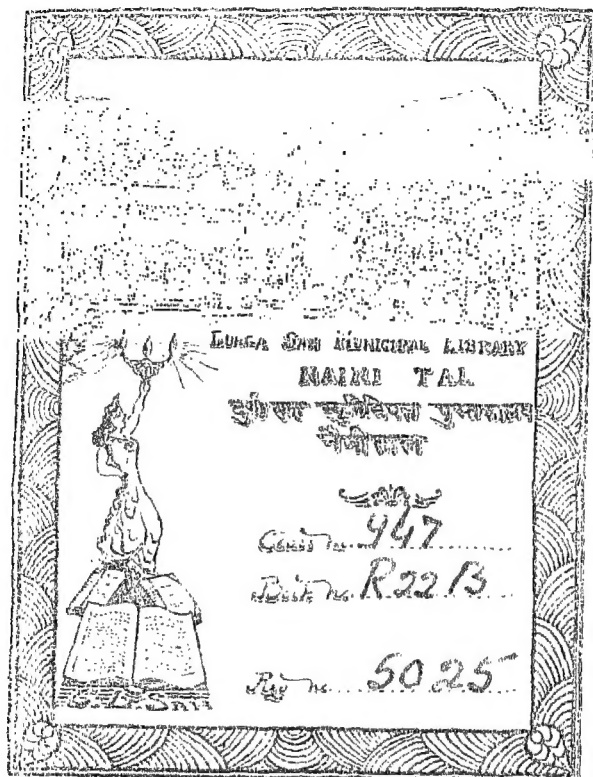 DURGA SAH MUNICIPAL LIBRARY
NAINI TAL
दुर्गा साह म्युनिसिपल पुस्तकालय
नैनीताल
Class no. 947
Book no. R22B
Reg no. 5025